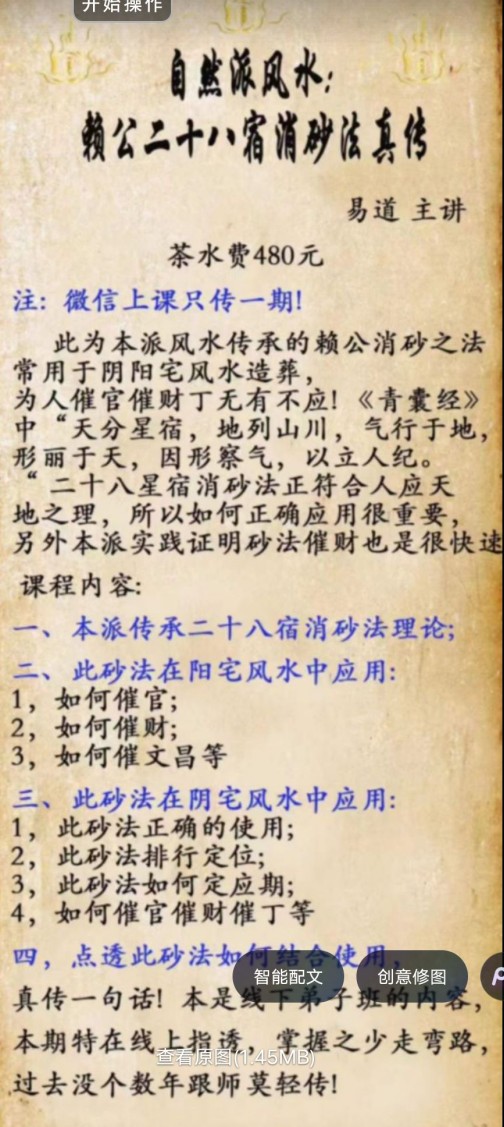 开始操作
自然派风水:
赖公二十八宿消砂法真传
易道 主讲
茶水费480元
注: 微信上课只传一期!
此为本派风水传承的赖公消砂之法
常用于阴阳宅风水造葬,
为人催官催财丁无有不应! 《青囊经》
中“天分星宿, 地列山川, 气行于地,
形丽于天, 因形察气, 以立人纪。
“ 二十八星宿消砂法正符合人应天
地之理, 所以如何正确应用很重要,
另外本派实践证明砂法催财也是很快速
课程内容:
一、本派传承二十八宿消砂法理论;
二、此砂法在阳宅风水中应用:
1, 如何催官;
2, 如何催财;
3, 如何催文昌等
三、此砂法在阴宅风水中应用:
1, 此砂法正确的使用;
2, 此砂法排行定位;
3, 此砂法如何定应期;
4, 如何催官催财催丁等
四, 点透此砂法如何结合使用,
智能配文
创意修图
真传一句话! 本是线下弟子班的内容,
本期特在线上指透, 掌握之少走弯路,
查看原图(1.45MB)
过去没个数年跟师莫轻传!